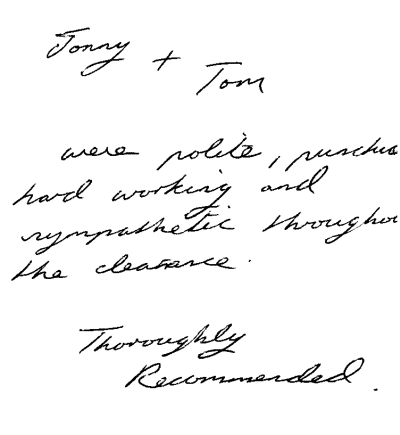 Jonny +
Tom
were polite, punctua
hard working and
sympathetic throughou
the clearance.
Thoroughly
Recommended.